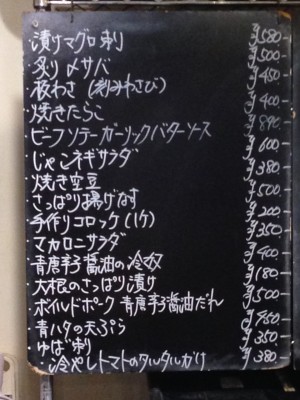 漬けマグロ刺 ¥580-
炙り〆サバ ¥500-
板わさ(刻みわさび) ¥450
焼きたらこ ¥400-
ビーフソテーガーリックバターソース ¥890-
じゃこネギサラダ ¥600-
焼き空豆 ¥380-
さっぱり揚げなす ¥500-
手作りコロッケ(1ケ) ¥200-
マカロニサラダ ¥350-
青唐辛子醤油の冷奴 ¥400-
大根のさっぱり漬け ¥180-
ボイルドポーク 青唐辛子醤油だれ ¥500-
青ハタの天ぷら ¥450-
ゆば刺 ¥350-
冷やしトマトのタルタルがけ ¥380-